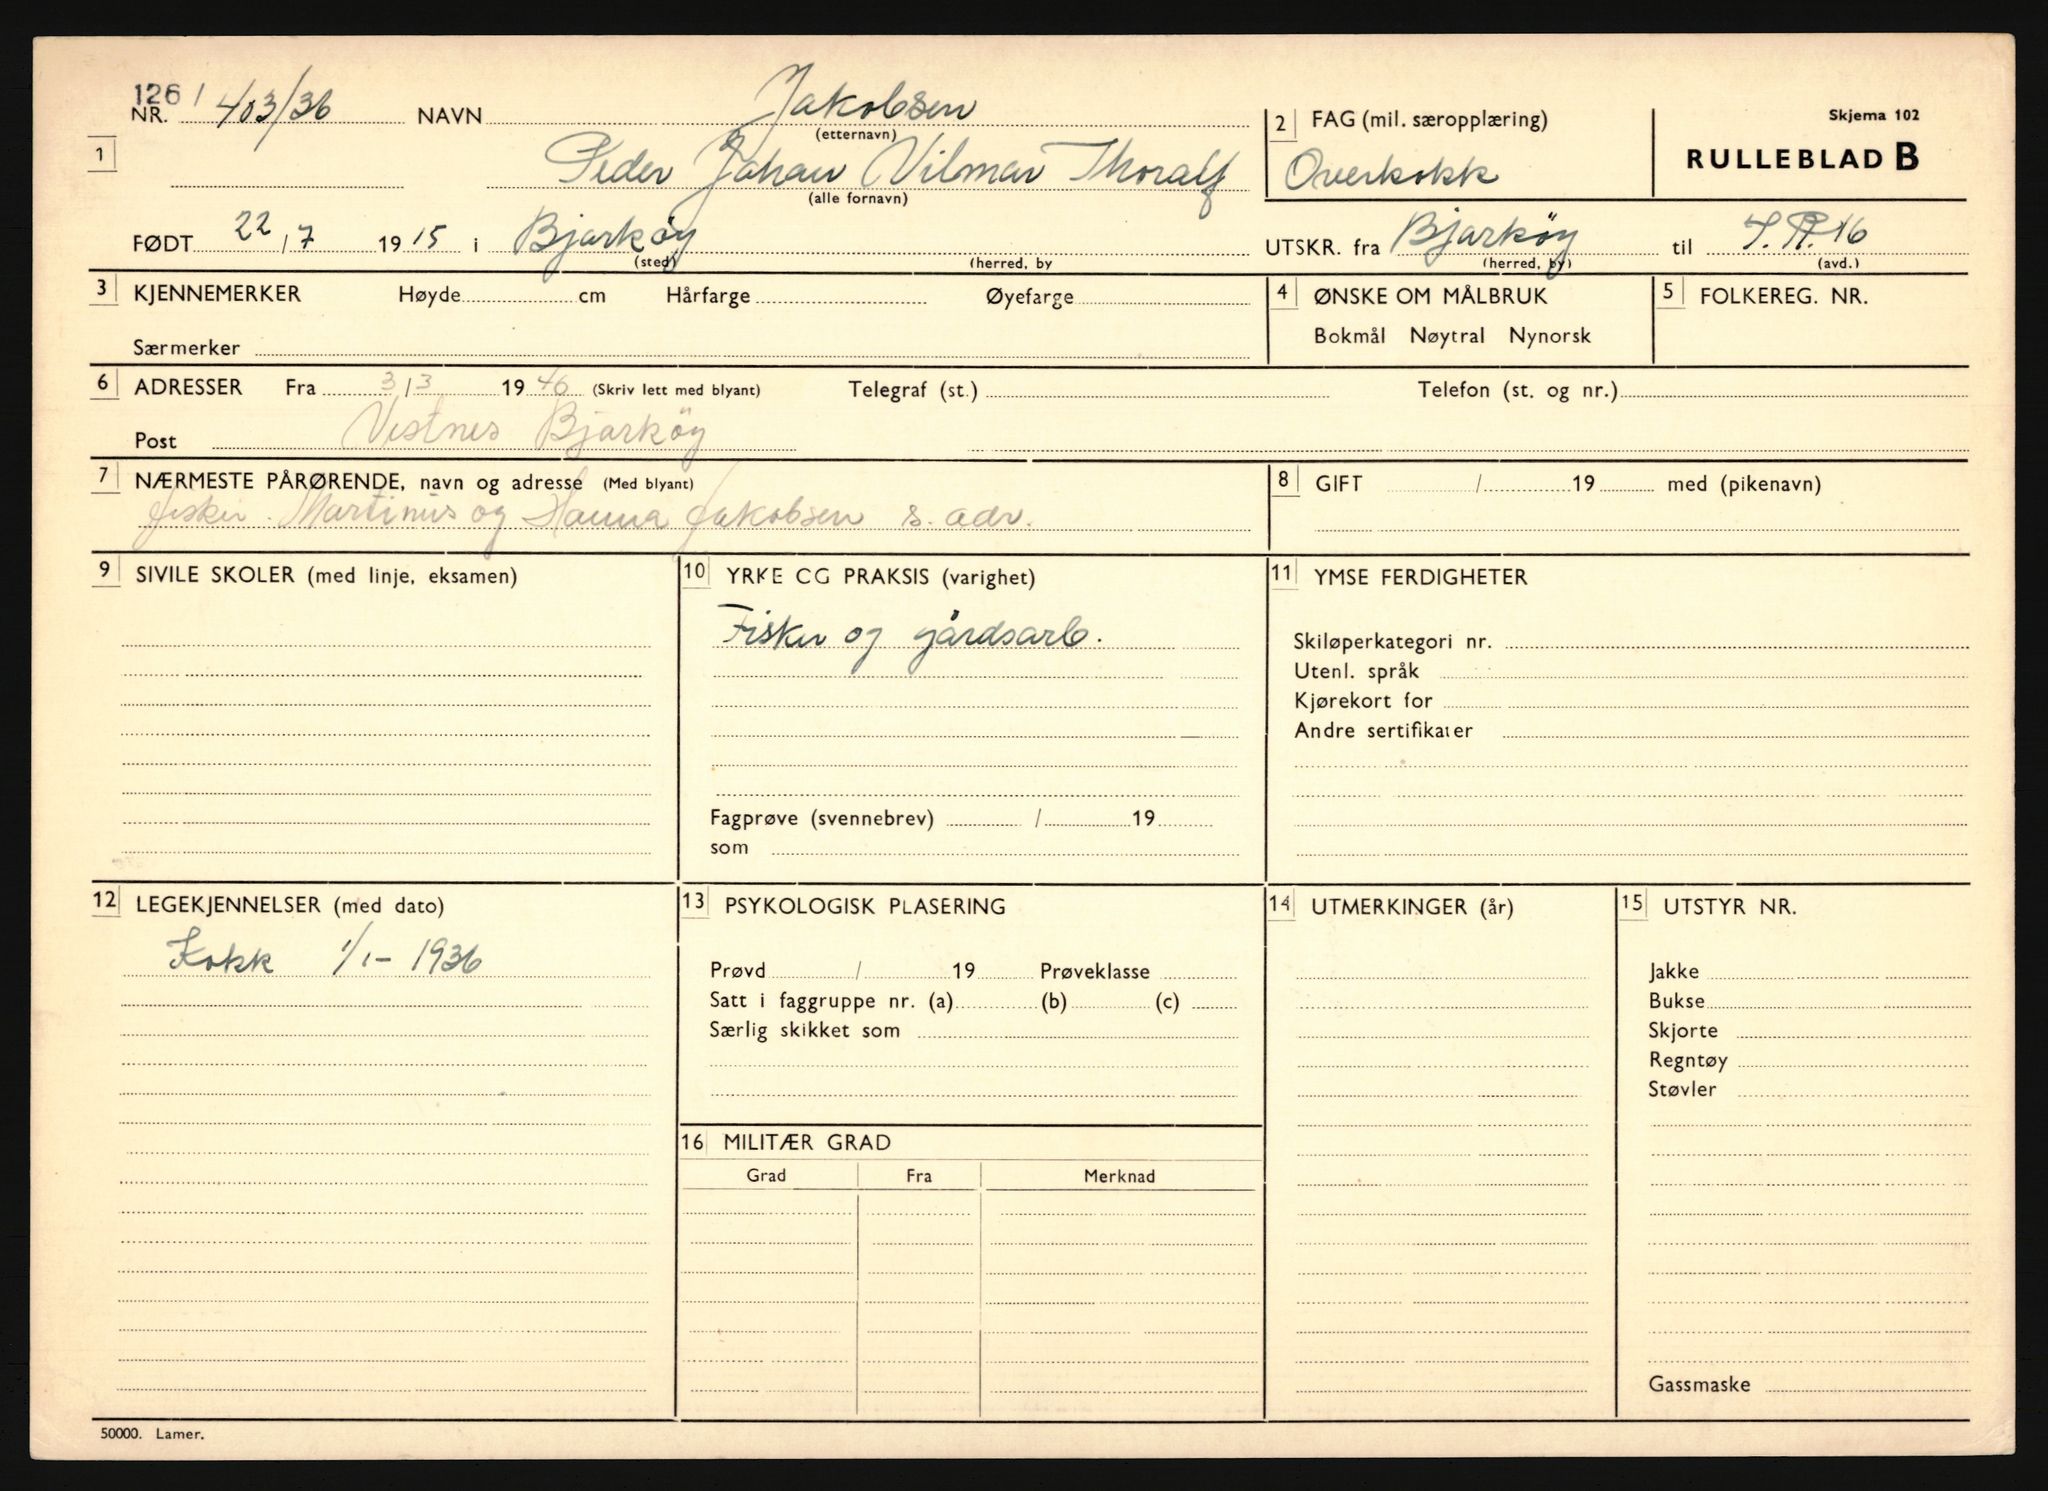 126/ 403/36
NR. NAVN Jakobsen
(etternavn)
1 Peder Johan Vilmar Thoralf
(alle fornavn)
FØDT 22/7 1915 i Bjarkøy
(sted) (herred, by
2 FAG (mil. særopplæring)
Overkokk
Skjema 102
RULLEBLAD B
UTSKR. fra Bjarkøy til I.R.16
(herred, by) (avd.)
3 KJENNEMERKER Høyde cm Hårfarge Øyefarge
Særmerker
4 ØNSKE OM MÅLBRUK
Bokmål Nøytral Nynorsk
5 FOLKEREG. NR.
6 ADRESSER Fra 3/3 1946 (Skriv lett med blyant) Telegraf (st.) Telefon (st. og nr.)
Post Vestnes Bjarkøy
7 NÆRMESTE PÅRØRENDE, navn og adresse (Med blyant)
fisker Martinus og Hanna Jakobsen s. adr.
8 GIFT / 19 med (pikenavn)
9 SIVILE SKOLER (med linje, eksamen)
10 YRKE CG PRAKSIS (varighet)
Fisker og gårdsarb.
Fagprøve (svennebrev) / 19
som
11 YMSE FERDIGHETER
Skiløperkategori nr.
Utenl. språk
Kjørekort for
Andre sertifikater
12 LEGEKJENNELSER (med dato)
Kokk 1/1- 1936
13 PSYKOLOGISK PLASERING
Prøvd / 19 Prøveklasse
Satt i faggruppe nr. (a) (b) (c)
Særlig skikket som
14 UTMERKINGER (år)
15 UTSTYR NR.
Jakke
Bukse
Skjorte
Regntøy
Støvler
Gassmaske
16 MILITÆR GRAD
Grad Fra Merknad
50000. Lamer.